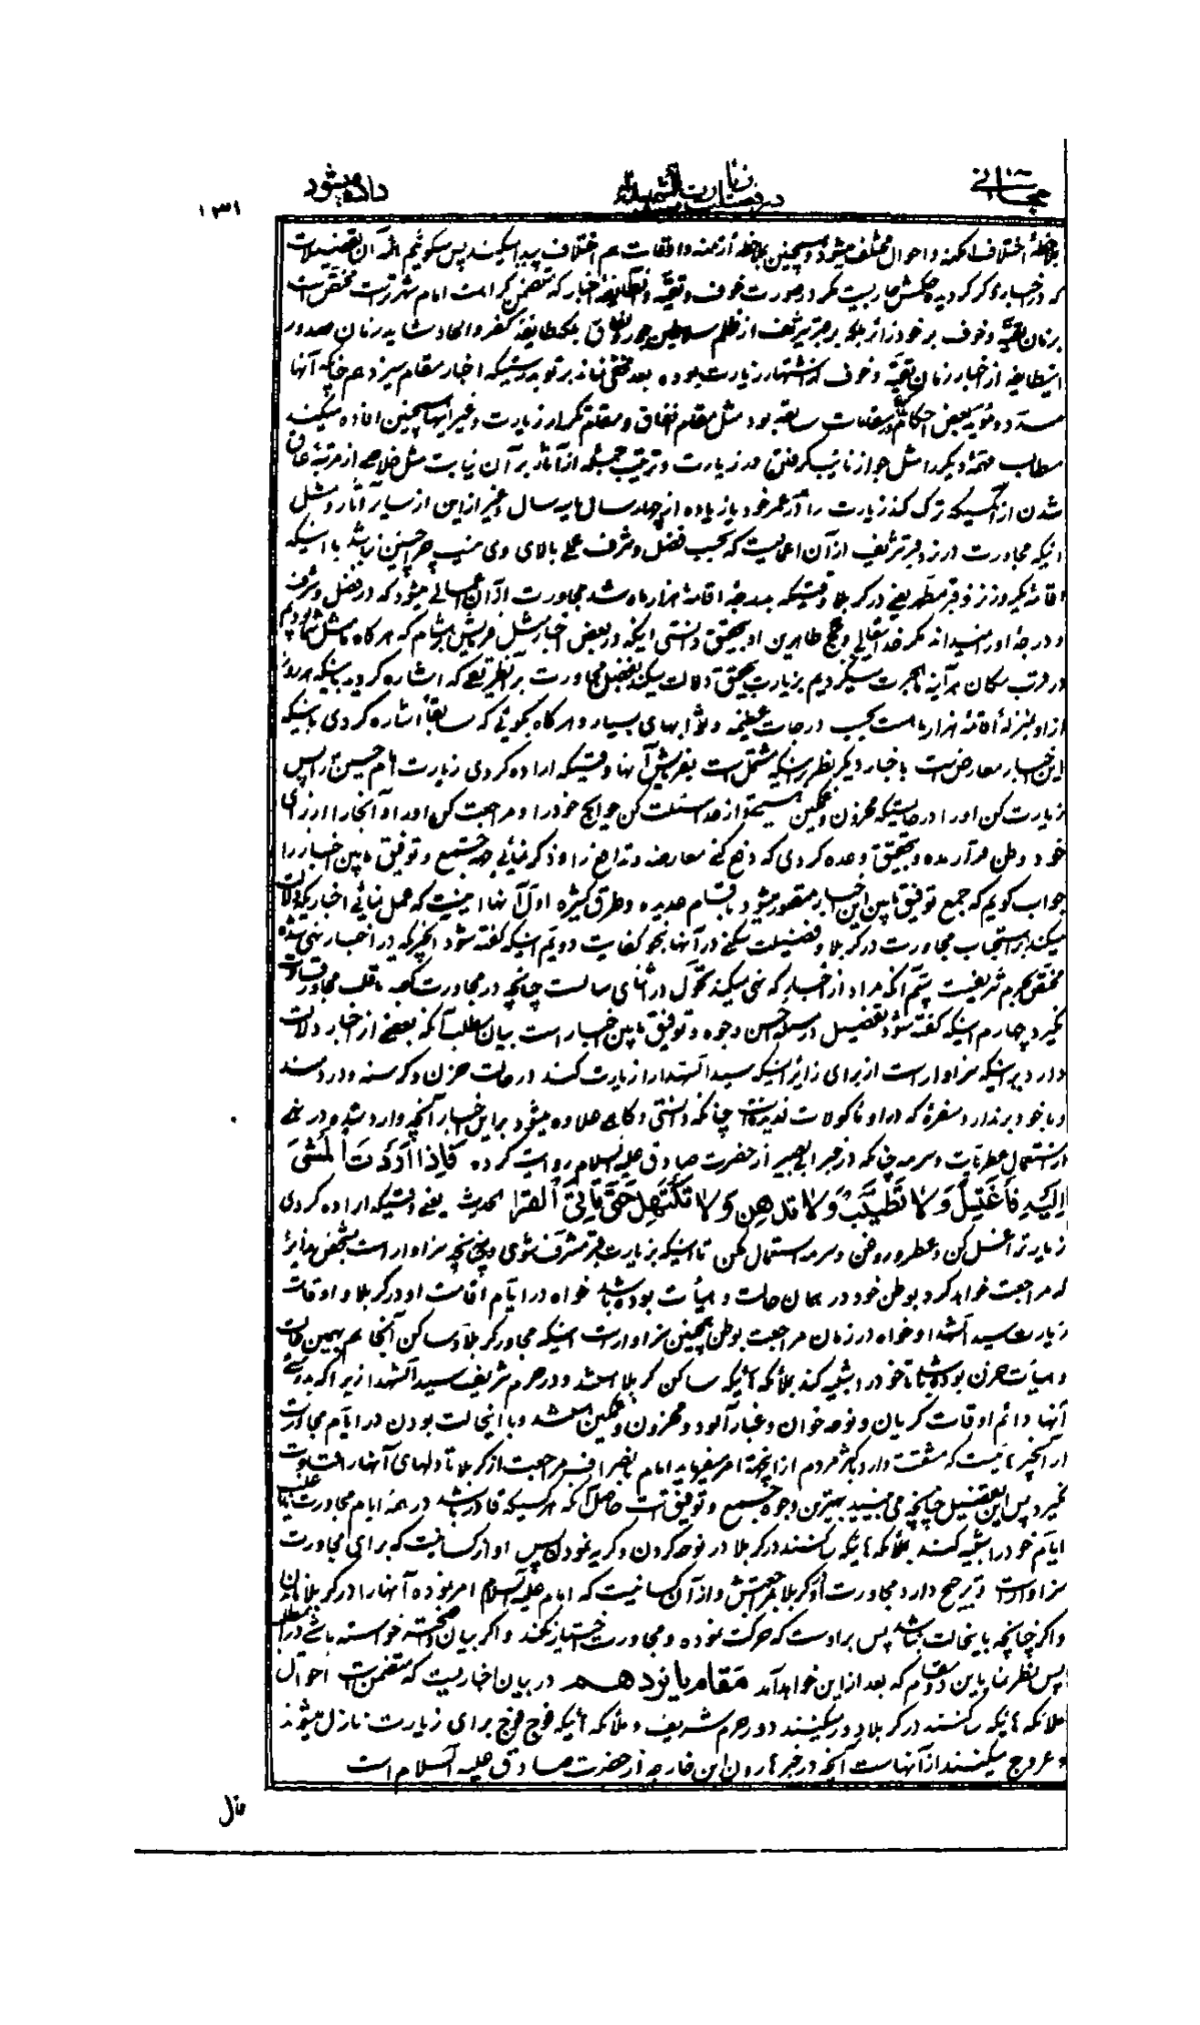 مجانی
زیارت سید الشهداء
داده میشود
۱۳۱
بملاحظهٔ اختلاف امکنه و احوال مختلف میشود و همچنین بملاحظه ازمنه و اوقات هم اختلاف پیدا میکند پس میگوئیم آن تفضیلات
که در اخباری ذکر گردیده حکمش جاریست مگر در صورت خوف و تقیه و آنطایفه اخبار که متضمن کراهت امام شهر تست مختص است
بزمان تقیه و خوف بر خود زائر بلکه بر قبر شریف از ظلم سلاطین جور و نفاق بلکه طایفه کفر و الحاد شاید زمان صدور
اینطایفه از اخبار زمان تقیه و خوف از اشتهار زیارت بوده بعد مخفی نماند بر تو بدرستیکه اخبار مقام سیزدهم چنانکه آنها
مسدد و مؤید بعض احکام مقامات سابقه بود مثل مقام انفاق و مقام تکرار زیارت و غیر اینها همچنین افاده میکند
مطالب مهمهٔ دیگر را مثل جواز نایب گرفتن در زیارت و ترتیب جمله از آثار بر آن نیابت مثل خلاصی از مرتبهٔ عاق
شدن از آنکسیکه ترک کند زیارت را در عمر خود یا زیاده از چهار سال یا سه سال و غیر از این از سایر آثار و مثل
اینکه مجاورت در نزد قبر شریف از آن اعمالیست که بحسب فضل و شرف عملی بالای وی نیست
اقامهٔ یکروز نزد قبر مطهر یعنی در کربلا وقتیکه بدرجهٔ اقامهٔ هزار ماه شد مجاورت از آن اعمالی میشود که در فضل و شرف
و درجهٔ او نمیداند مگر خدایتعالی و حجج طاهرین او بتحقیق دانستی اینکه در بعض اخبار مثل فرمایش هشام که هر گاه مثل شما بودیم
در قرب مکان هر آینه هجرت میکردیم بزیارت بتحقیق دلالت میکند بفضیل مجاورت بر آنطریقی که اشاره گردید باینکه هر روز
از او بمنزله اقامهٔ هزار ماهست بحسب درجات عظیمه و ثوابهای بسیار و هر گاه بگوئی که سابقا اشاره کردی باینکه
این اخبار معارض است با خبار دیگر نظر باینکه مشتمل است بفرمایش آنها وقتیکه اراده کردی زیارت امام حسین را پس
زیارت کن او را در حالتیکه محزون و غمگین هستی و از خدا مسئلت کن حوایج خود را و مراجعت کن و او را و آنجا را از برای
خود وطن قرار مده و بتحقیق وعده کردی که دفع کنی معارضه و تدافع را و ذکر نمائی وجه جمع و توفیق مابین اخبار را
جواب گویم که جمع توفیق مابین این اخبار متصور میشود باقسام عدیده و طرق کثیره اول آنها اینست که عمل نمائی اخباریکه دلالت
میکند بر استحباب مجاورت در کربلا و فضیلت سکنی در آنها بنحو کفایت دویم اینکه گفته شود آنچیز که در اخبار نهی شده
مختص بحرم شریفست سیم آنکه مراد از اخبار که نهی میکند تحول در اثنای سالست چنانچه در مجاورت کعبه تا قلب مجاور قساوت
نگیرد چهارم اینکه گفته شود تفصیل در مسئله احسن وجوه و توفیق مابین اخبار است بیان مطلب آنکه بعضی از اخبار دلالت
دارد بر اینکه سزاوار است از برای زائر اینکه سید الشهدا را زیارت کند در حالت حزن و گرسنه و دردمند
و با خود برندارد سفرهٔ که در او مأکولات لذیذه است چنانکه دانستی و گاهی علاوه میشود بر این اخبار آنچه وارد شده در نهی
از استعمال عطریات و سرمه چنانکه در خبر ابی بصیر از حضرت صادق علیه السلام روایت کرده فَاِذا اَرَدْتَ الْمَشْیَ
اِلَیْهِ فَاغْتَسِلْ وَلا تَطَیَّبْ وَلا تَدَهَّنْ وَلا تَکْتَحِلْ حَتّی تَأْتِیَ الْقَبْرَ الحدیث یعنی وقتیکه اراده کردی
زیارترا غسل کن و عطر و روغن و سرمه استعمال مکن تا اینکه بزیارت قبر مشرف شوی و چنانچه سزاوار است بشخص زایر
که مراجعت خواهد کرد بوطن خود در همان حالت و هیأت بوده باشد خواه در ایام اقامت او در کربلا و اوقات
زیارت سید الشهدا و خواه در زمان مراجعت بوطن همچنین سزاوار است اینکه مجاور کربلا و ساکن آنجا هم بهمین حالت
و هیأت حزن بوده باشد تا خود را شبیه کند بملائکه هائیکه ساکن کربلا هستند و در حرم شریف سید الشهدا زیرا که بدرستی
آنها دائم اوقات گریان و نوحه خوان و غبار آلود و محزون و غمگین هستند و با اینحالت بودن در ایام مجاورت
از آنچیزهائیست که مشقت دارد باکثر مردم از اینجهة امر میفرماید امام بمراجعت از کربلا تا دلهای آنها را قساوت
نگیرد پس این تفصیل چنانچه می بینید بهترین وجوه جمع و توفیق است حاصل آنکه هر کسیکه قادر باشد در همهٔ ایام مجاورت یا غالب
ایام خود را شبیه کند بملائکه هائیکه ساکنند در کربلا در نوحه کردن و گریه نمودن پس او از کسانیست که برای مجاورت
سزاوار است و ترجیح دارد مجاورت او در کربلا بمراجعتش و از آن کسانیست که امام علیه السلام امر نموده آنها را در کربلا بماندن
و اگر چنانچه باینحالت نباشد پس بر او است که حرکت نموده و مجاورت اختیار نکند و اگر بیان واضحتر خواسته باشی در این مطلب
پس نظر نما باین دو مقام که بعد از این خواهد آمد مقام پانزدهم در بیان اخباریست که متضمن است احوال
ملائکه هائیکه ساکنند در کربلا و دور میکنند دور حرم شریف و ملائکه هائیکه فوج فوج برای زیارت نازل میشوند
و عروج میکنند از آنهاست آنچه در خبر هارون ابن خارجه از حضرت صادق علیه السلام است
قال